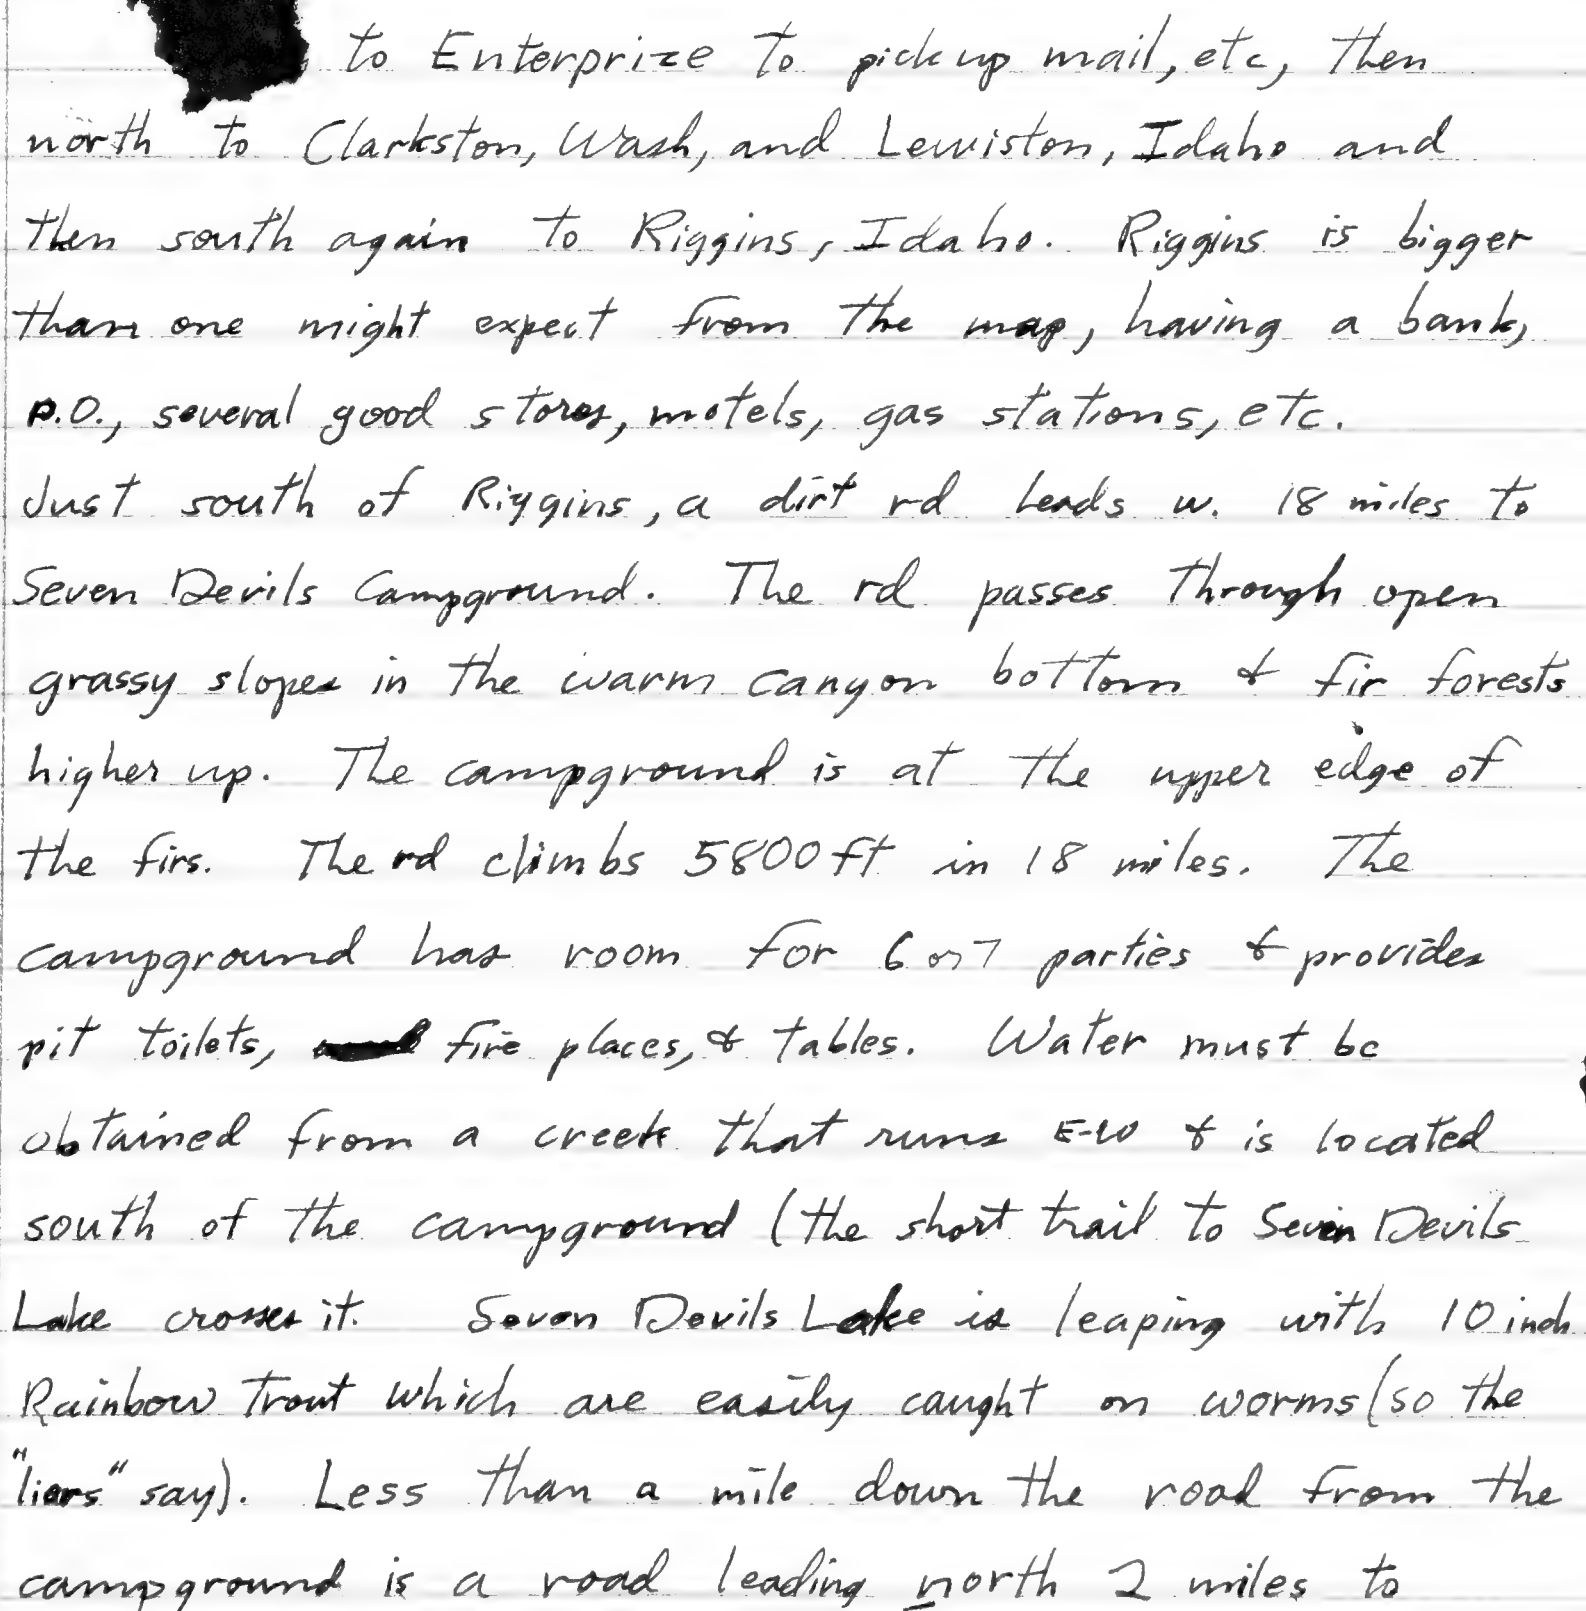 to Enterprize to pick up mail, etc, then
north to Clarkston, Wash, and Lewiston, Idaho and
then south again to Riggins, Idaho. Riggins is bigger
than one might expect from the map, having a bank,
P.O., several good stores, motels, gas stations, etc.
Just south of Riggins, a dirt rd leads w. 18 miles to
Seven Devils Campground. The rd passes through open
grassy slopes in the warm canyon bottom & fir forests
higher up. The campground is at the upper edge of
the firs. The rd climbs 5800 ft in 18 miles. The
campground has room for 6 or 7 parties & provides
pit toilets, fire places, & tables. Water must be
obtained from a creek that runs E-W & is located
south of the campground (the short trail to Seven Devils
Lake crosses it. Seven Devils Lake is leaping with 10 inch
Rainbow Trout which are easily caught on worms (so the
"liars" say). Less than a mile down the road from the
campground is a road leading north 2 miles to